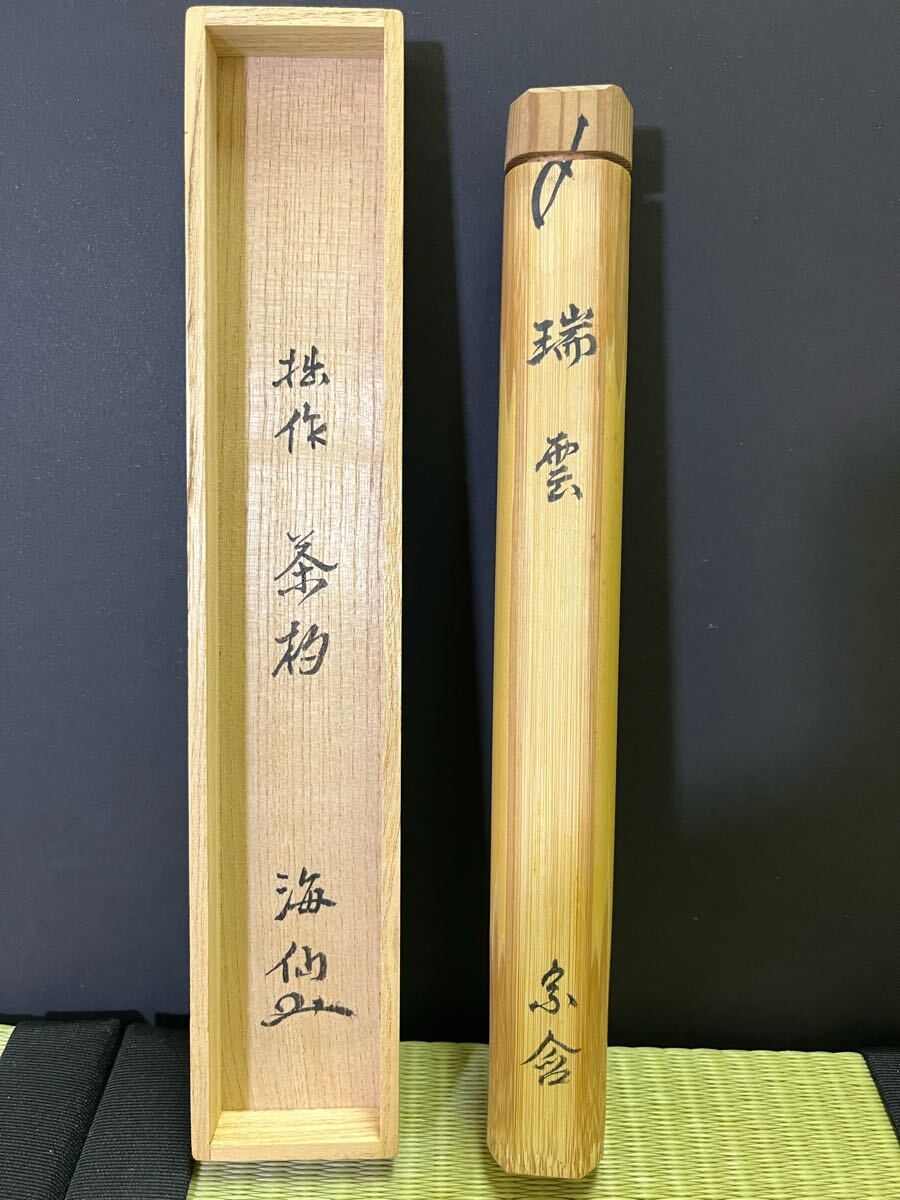 〆
瑞雲
宗含
拙作 茶杓
海仙